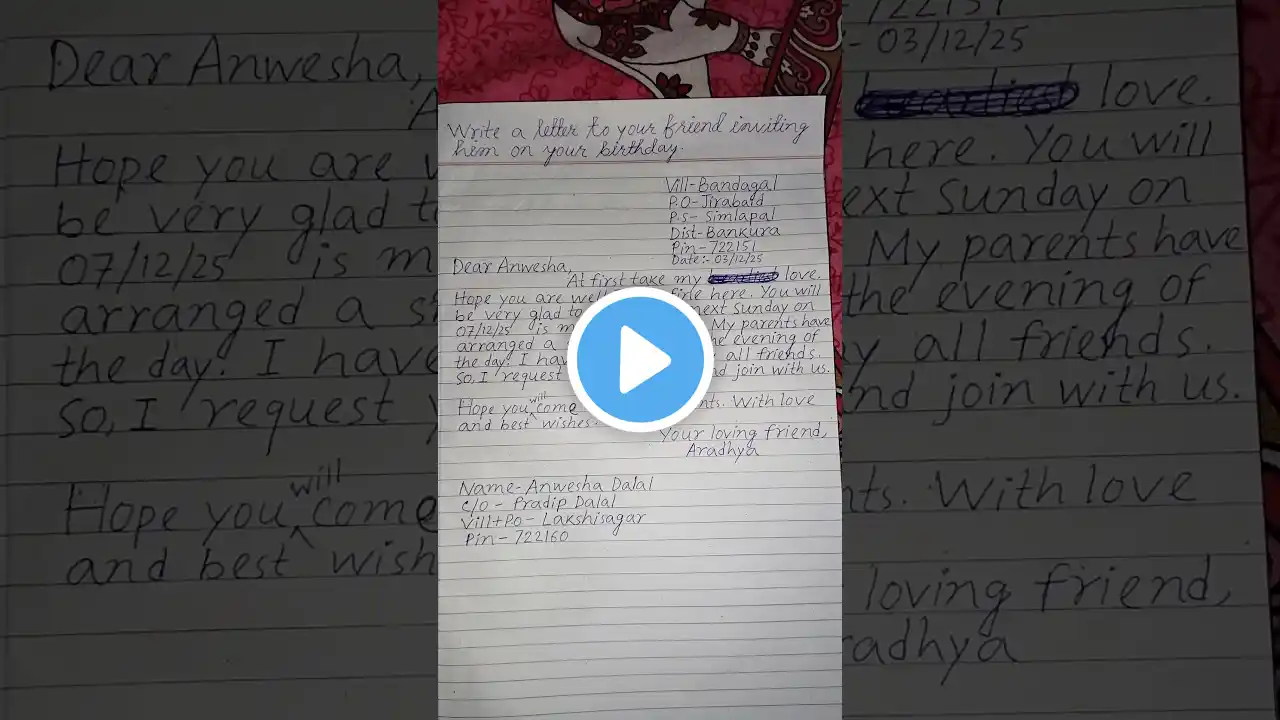 Write a letter to your friend inviting
them on your birthday.
Vill-Bandagal
P.O-Jirabaid
P.S- Simlapal
Dist-Bankura
Pin-722151
Date:-03/12/25
Dear Anwesha,
At first take my love.
Hope you are well fine here. You will
be very glad to next Sunday on
07/12/25 is m My parents have
arranged a the evening of
the day. I have all friends.
So, I request and join with us.
Hope you will come nts. With love
and best wishes.
Your loving friend,
Aradhya
Name- Anwesha Dalal
C/o - Pradip Dalal
Vill+Po- Lakshisagar
Pin-722160